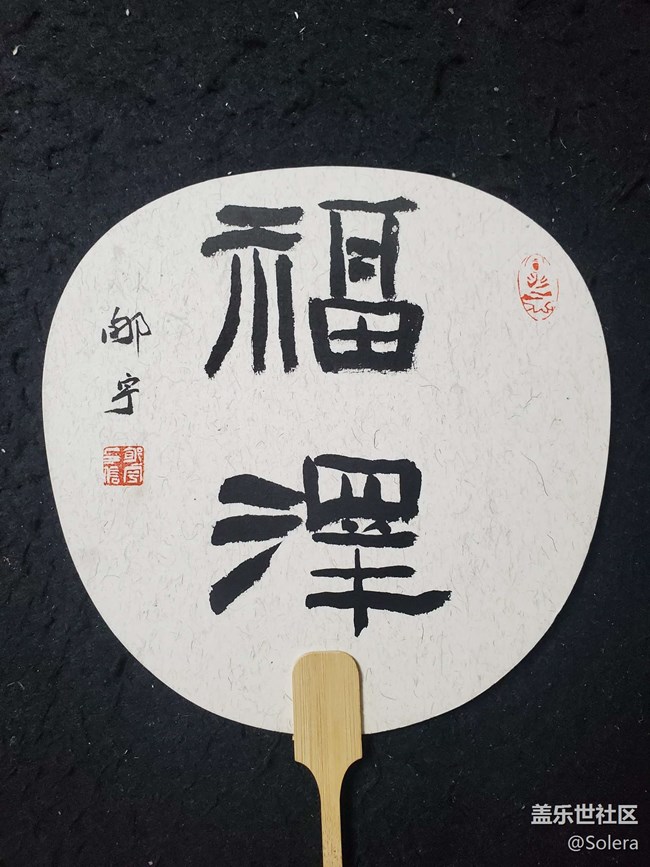 福
澤
宁
盖乐世社区
@Solera